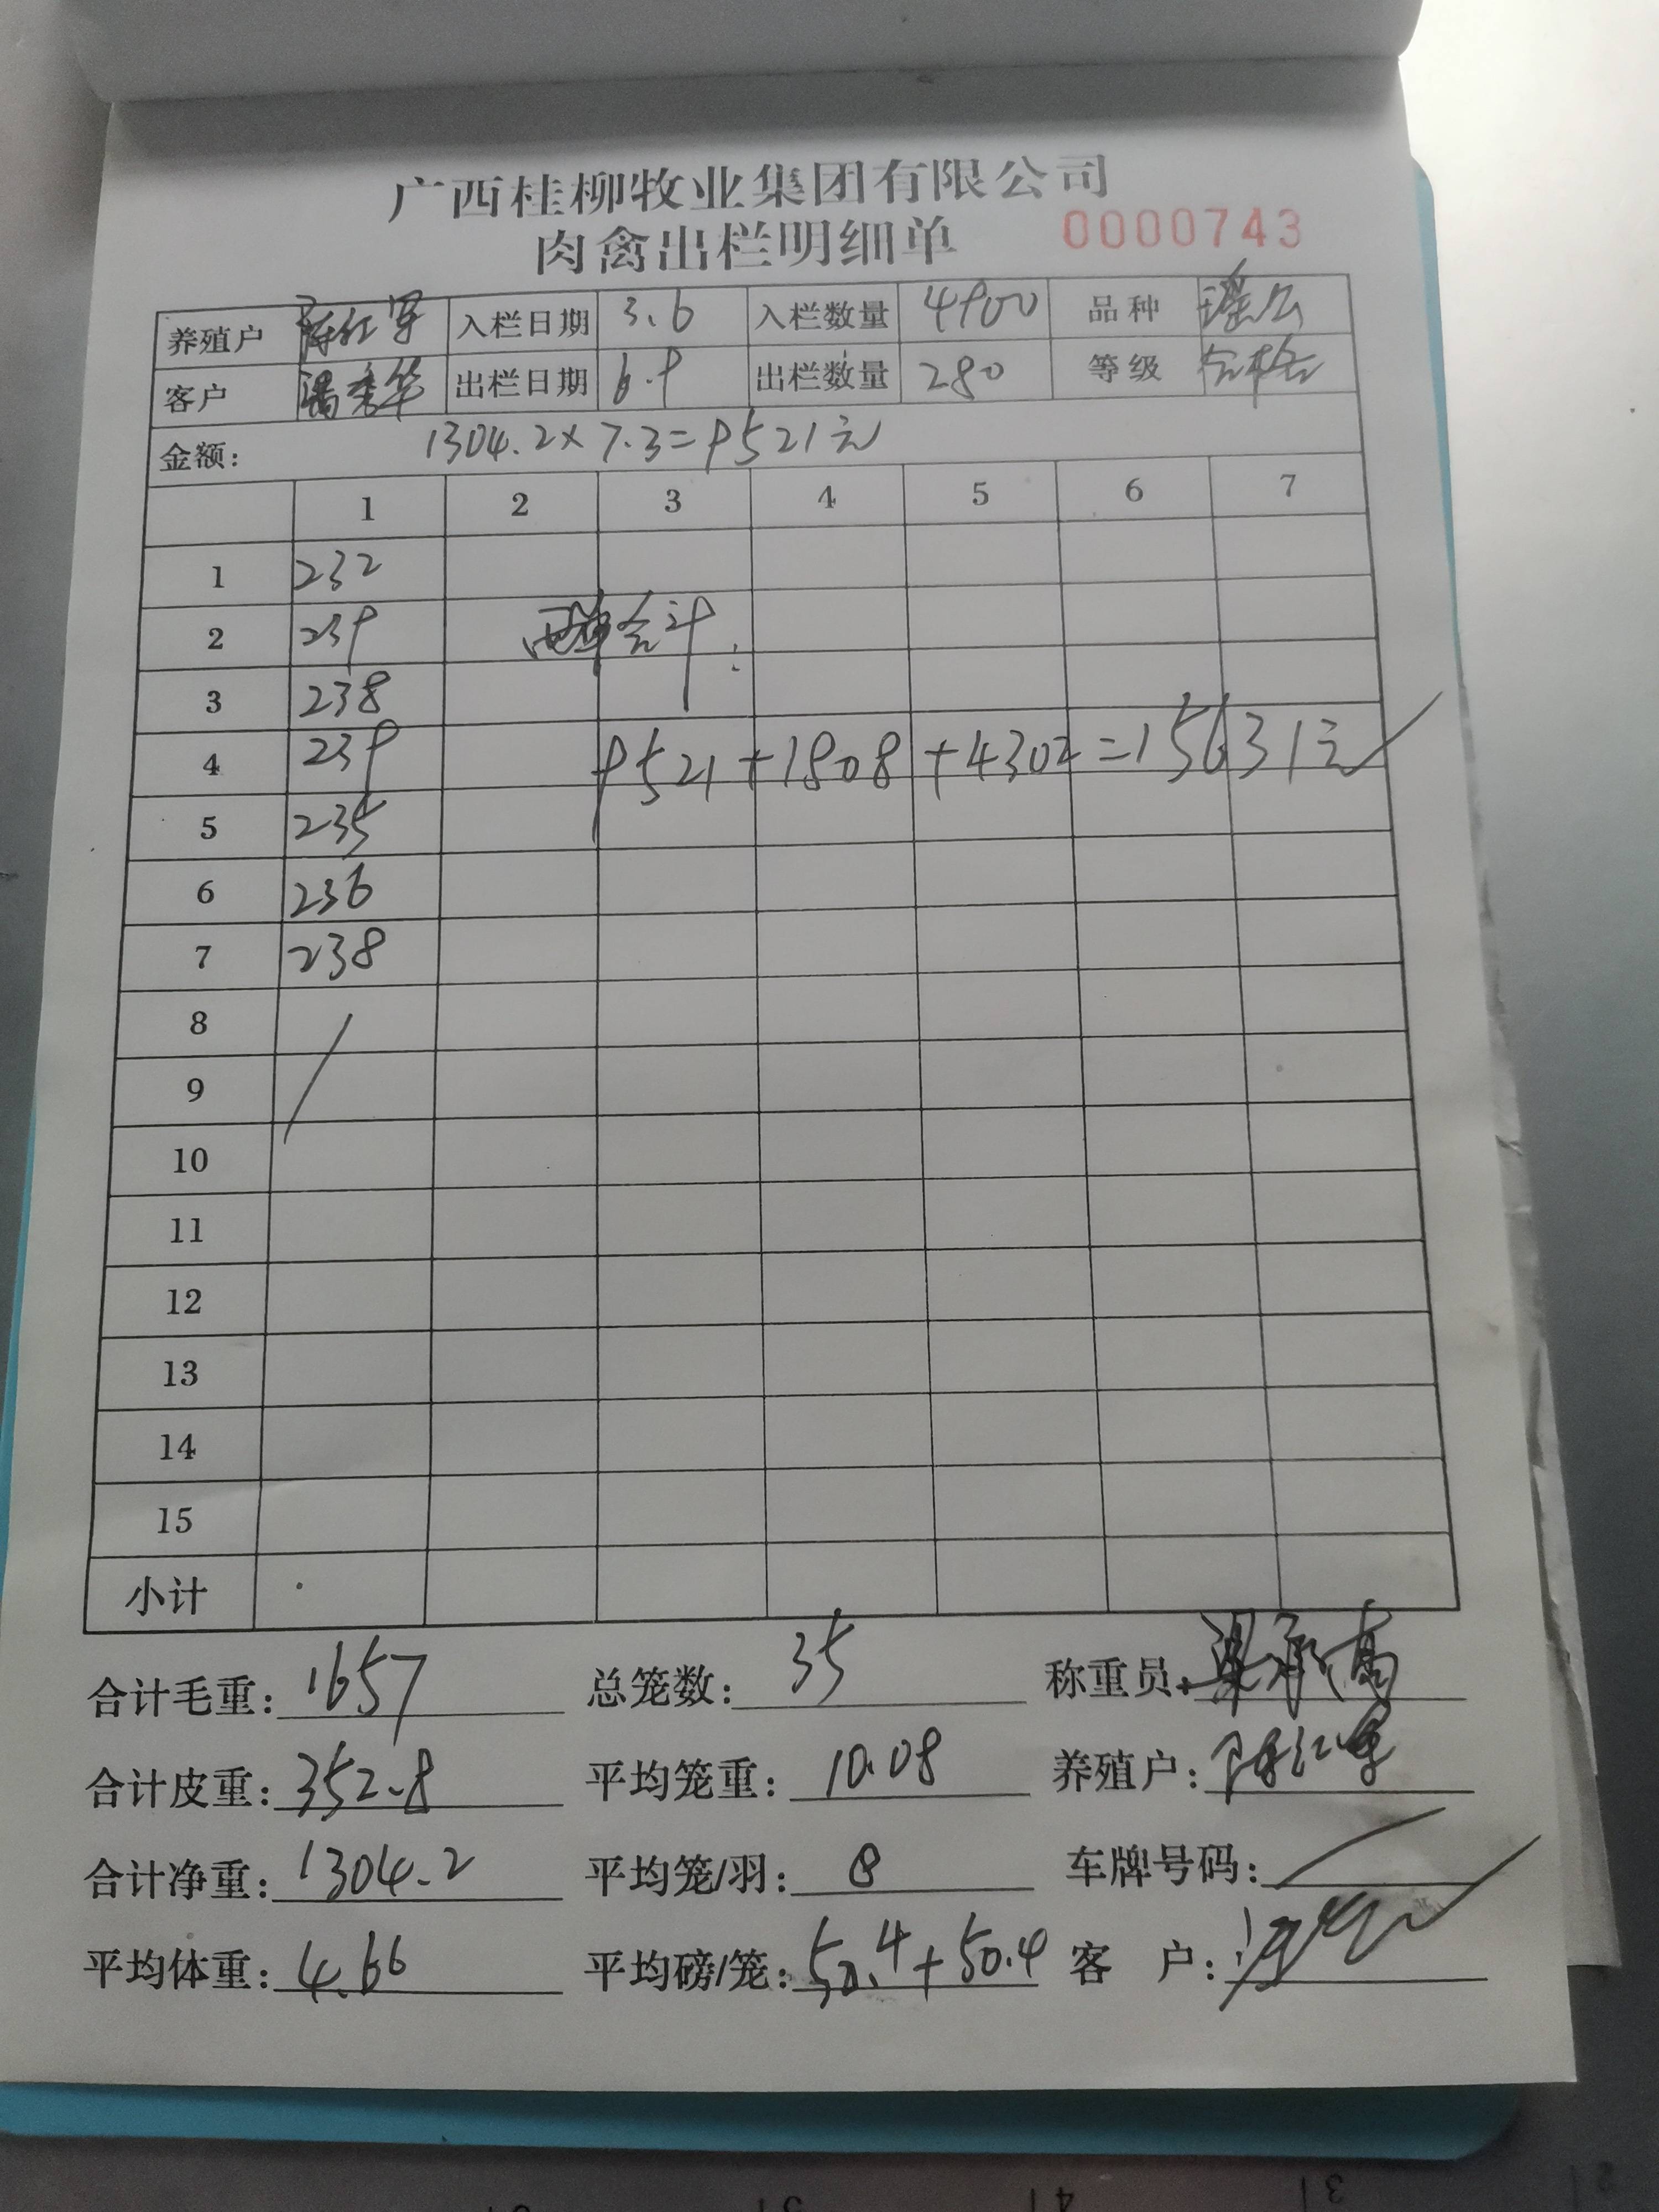 广西桂柳牧业集团有限公司
肉禽出栏明细单 0000743
养殖户 陈红军 入栏日期 3.6 入栏数量 4900 品种 瑶公
客户 潘秀华 出栏日期 6.9 出栏数量 280 等级 合格
金额: 1304.2×7.3=9521元
1 2 3 4 5 6 7
1 232
2 239 两单合计:
3 238
4 239 9521+1808+4302=15631元
5 235
6 236
7 238
8
9
10
11
12
13
14
15
小计
合计毛重: 1657 总笼数: 35 称重员: 梁承高
合计皮重: 352.8 平均笼重: 10.08 养殖户: 陈红军
合计净重: 1304.2 平均笼/羽: 8 车牌号码:
平均体重: 4.66 平均磅/笼: 50.4+50.4 客 户: